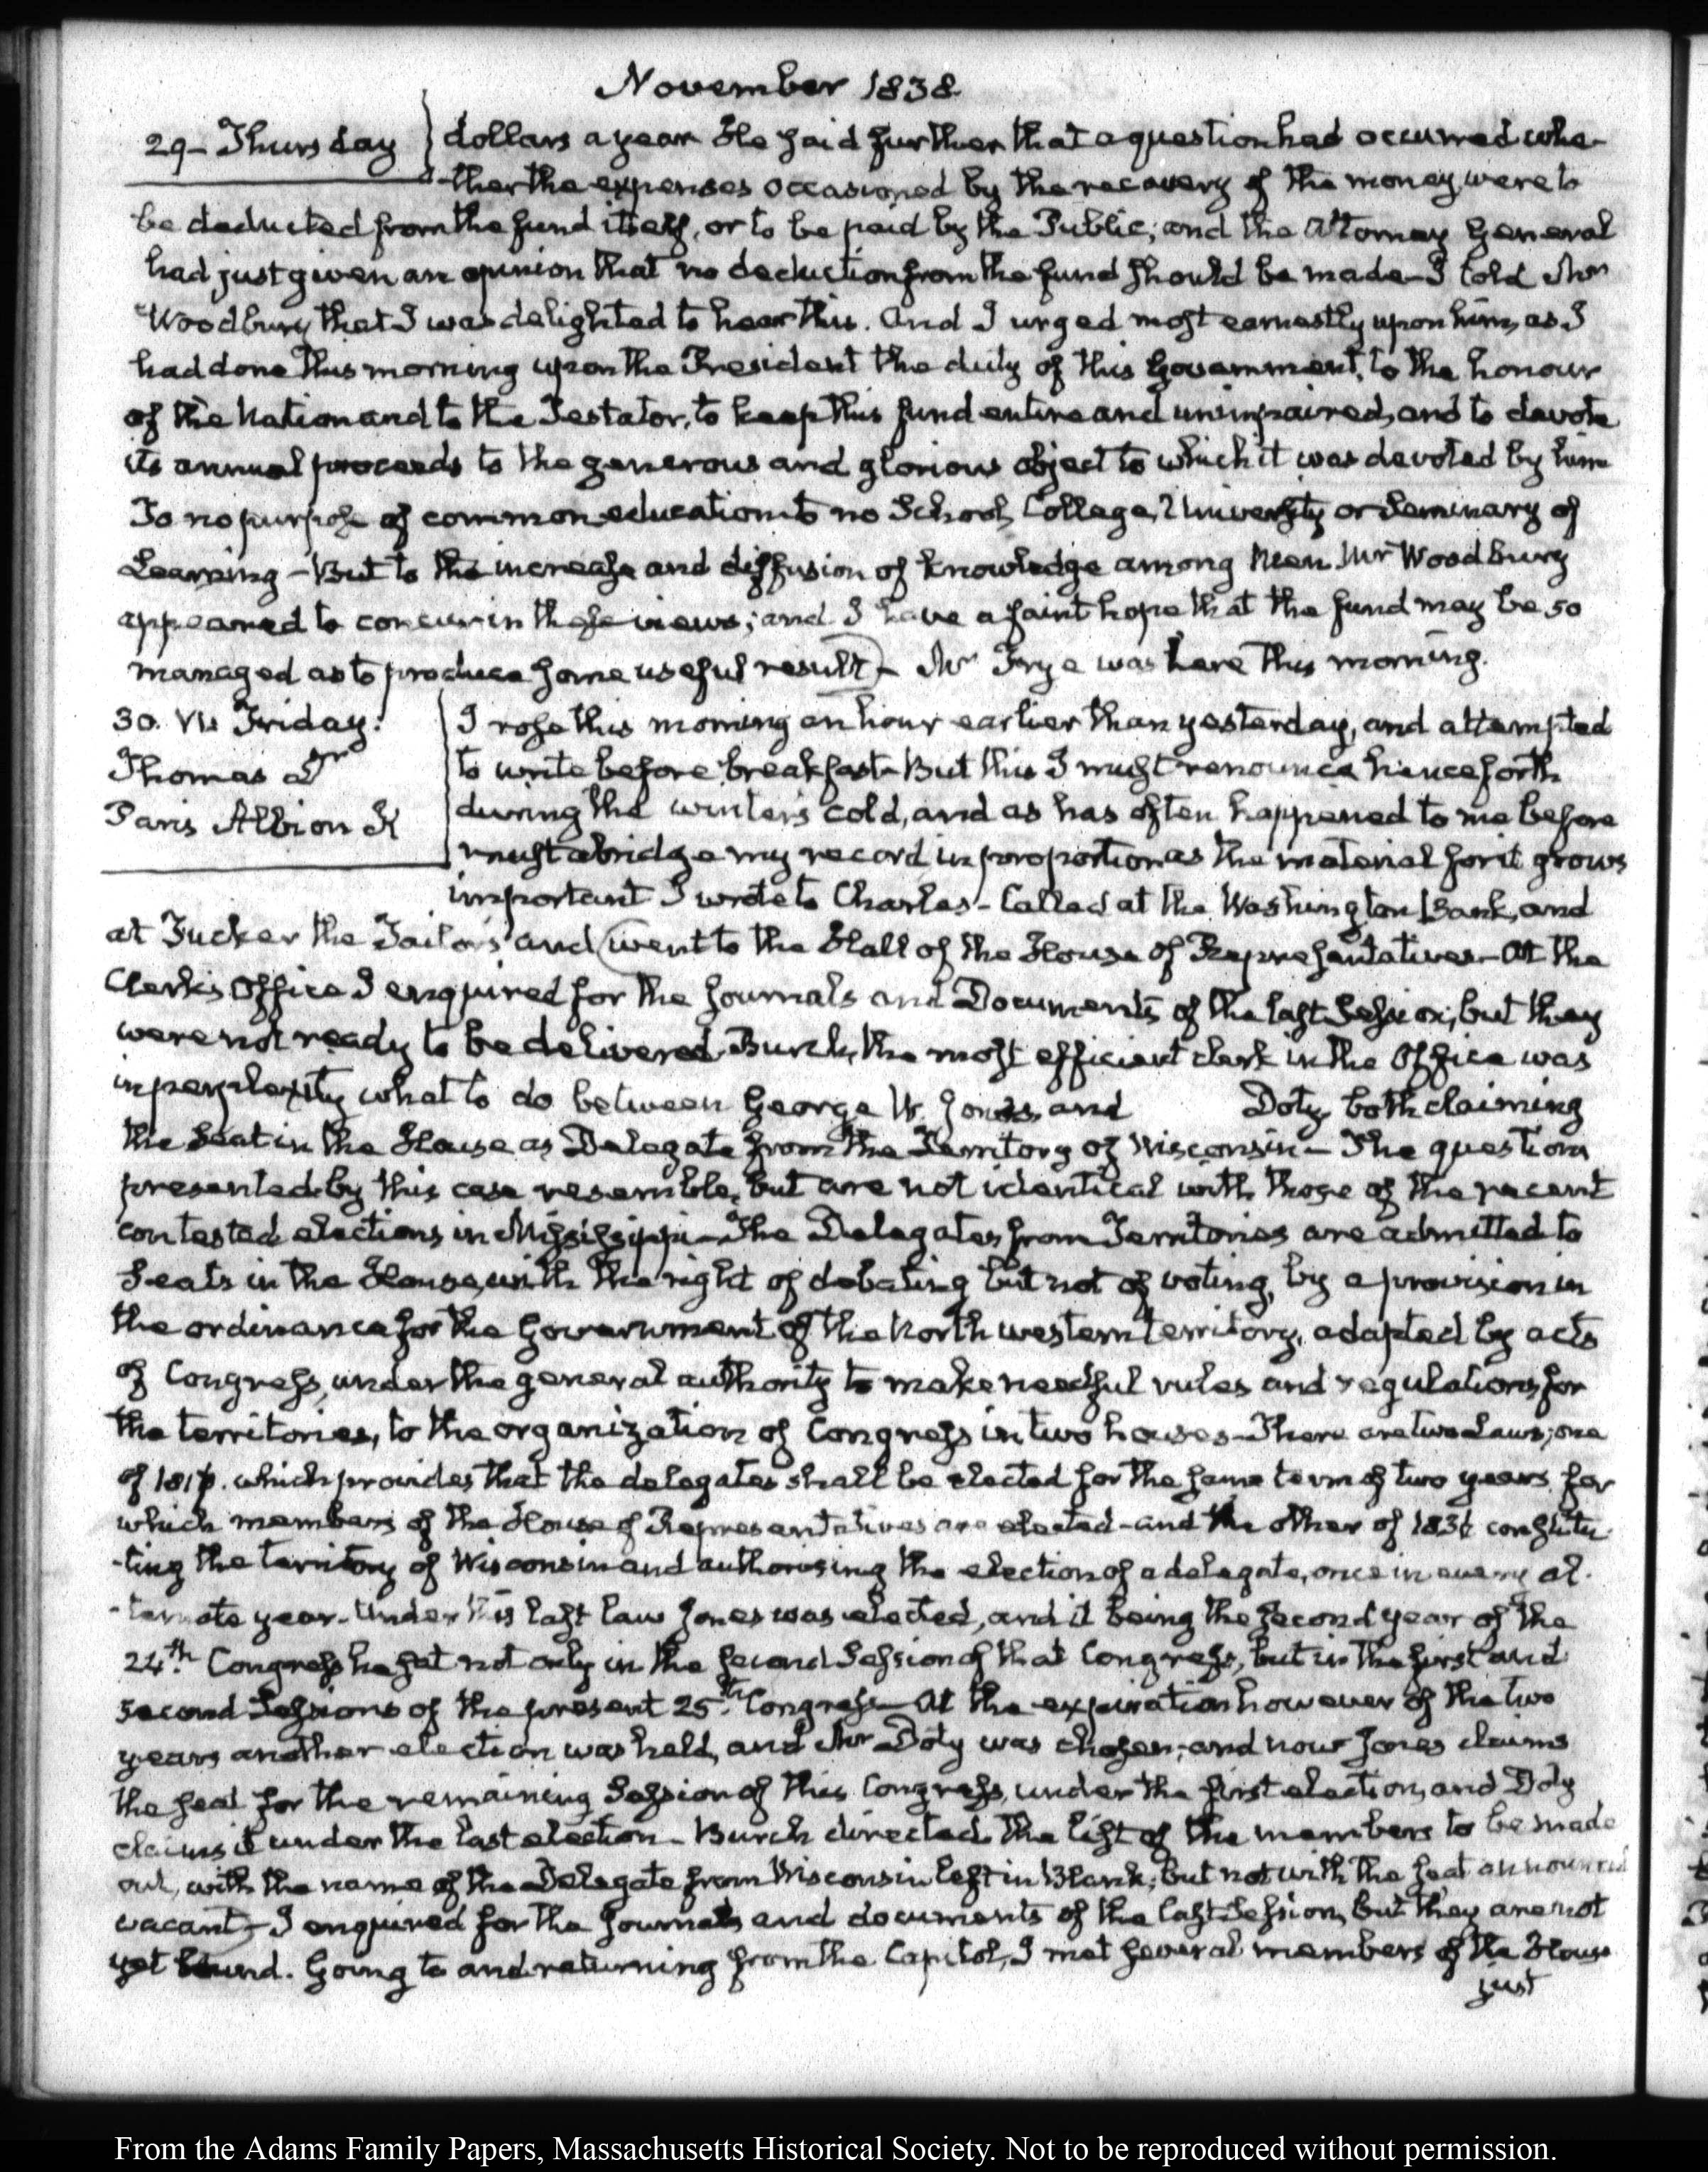 November 1838
29- Thursday
dollars a year He said further that a question had occurred whe-
-ther the expenses occasioned by the recovery of the money were to
be deducted from the fund itself, or to be paid by the Public; and the Attorney General
had just given an opinion that no deduction from the fund should be made- I told Mr
Woodbury that I was delighted to hear this. And I urged most earnestly upon him, as I
had done this morning upon the President the duty of this Government, to the honour
of the Nation and to the Testator, to keep this fund entire and unimpaired, and to devote
its annual proceeds to the generous and glorious object to which it was devoted by him
To no purpose of common education to no School, College, University or Seminary of
Learning - But to the increase and diffusion of knowledge among Men. Mr Woodbury
appeared to concur in these views; and I have a faint hope that the fund may be so
managed as to produce some useful result)- Mr Frye was here this morning.
30. VI. Friday.
Thomas Dr
Paris Albion K
I rose this morning an hour earlier than yesterday, and attempted
to write before breakfast- But this I must renounce henceforth
during the winter's cold, and as has often happened to me before
must abridge my record in proportion as the material for it grows
important I wrote to Charles- Called at the Washington Bank, and
at Tucker the Tailors and (went to the Hall of the House of Representatives- At the
Clerk's Office I enquired for the Journals and Documents of the last Session; but they
were not ready to be delivered. Burch, the most efficient clerk in the Office was
in perplexity what to do between George W. Jones, and Doty, both claiming
the Seat in the House as Delegate from the Territory of Wisconsin- The questions
presented by this case resemble, but are not identical with those of the recent
contested elections in Mississippi- The Delegates from Territories are admitted to
Seats in the House, with the right of debating but not of voting, by a provision in
the ordinance for the Government of the North western territory, adapted by acts
of Congress, under the general authority to make needful rules and regulations for
the territories, to the organization of Congress in two houses- There are two Laws; one
of 1817. which provides that the delegates shall be elected for the same term of two years for
which members of the House of Representatives are elected- and the other of 1836 constitu-
-ting the territory of Wisconsin and authorising the election of a delegate, once in every al-
-ternate year- Under this last law Jones was elected, and it being the second year of the
24th. Congress he sat not only in the second Session of that Congress, but in the first and
second Sessions of the present 25th. Congress- At the expiration however of the two
years another election was held, and Mr Doty was chosen; and now Jones claims
the seat for the remaining Session of this Congress, under the first election, and Doty
claims it under the last election- Burch directed the list of the members to be made
out, with the name of the Delegate from Wisconsin left in Blank; but not with the seat announced
vacant)- I enquired for the Journals and documents of the last Session, but they are not
yet bound. Going to and returning from the Capitol, I met several members of the House
just
From the Adams Family Papers, Massachusetts Historical Society. Not to be reproduced without permission.